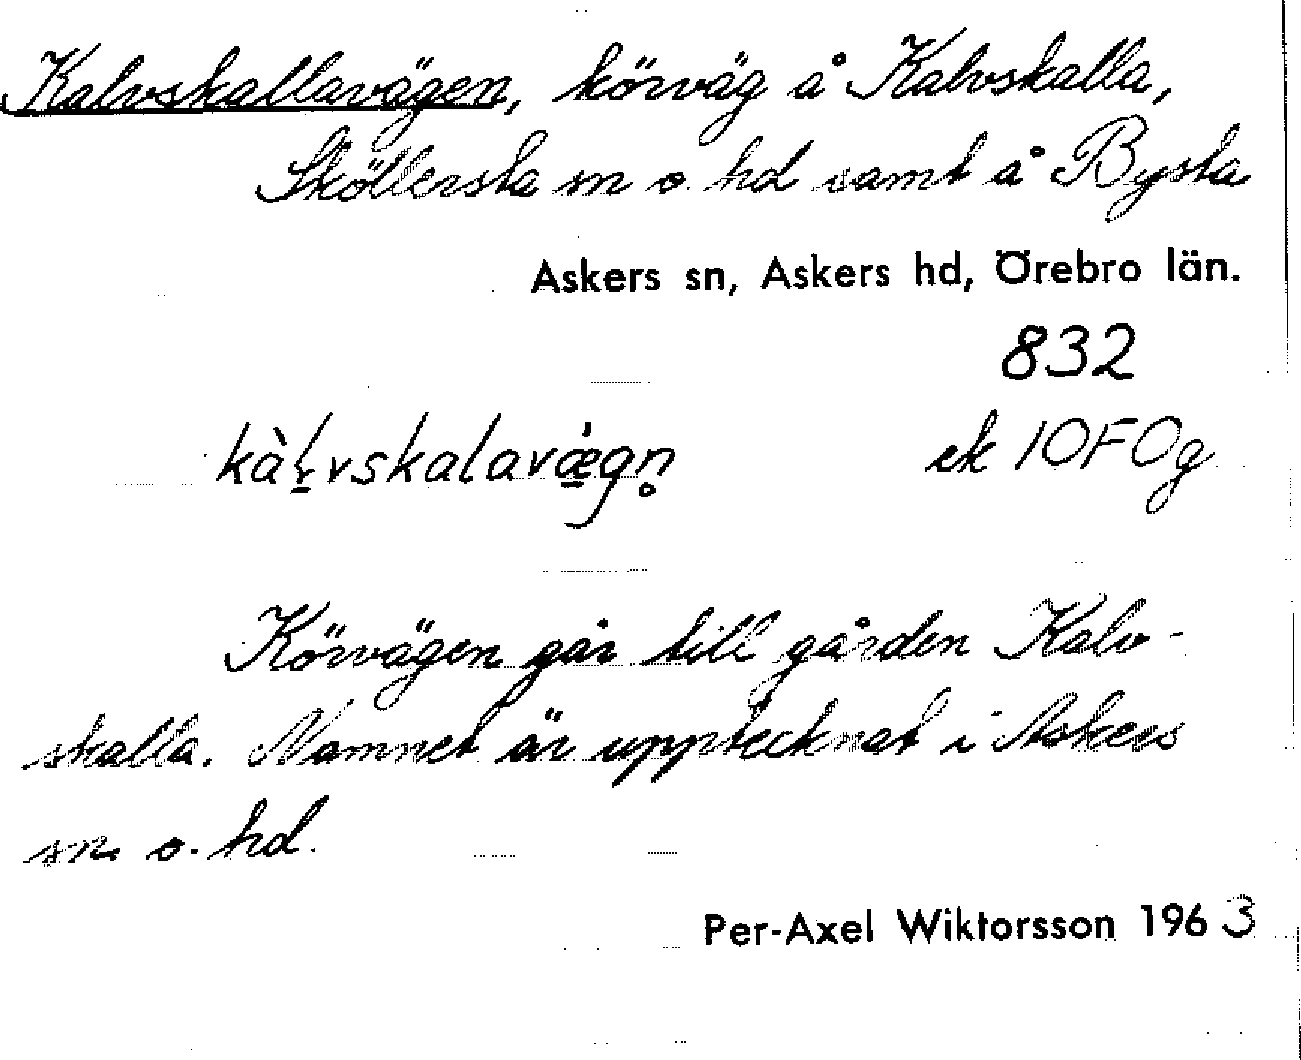 Kalvskallavägen, körväg å Kalvskalla,
Sköllersta sn o. hd samt å Bysta
Askers sn, Askers hd, Örebro län.
832
kàl̠vskalavǽgn̥
ek 10F0g
Körvägen går till gården Kalv-
skalla. Namnet är upptecknat i Askers
sn o. hd.
Per-Axel Wiktorsson 1963